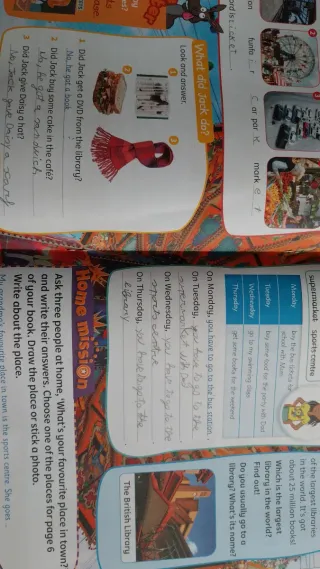 ord is: c r i c k e t
funfa i r
c ar par k
mark e t
What did Jack do?
Look and answer.
1
2
3
1 Did Jack get a DVD from the library?
No, he got a book
2 Did Jack buy some cake in the café?
No, he got a sandwich
3 Did Jack give Daisy a hat?
supermarket
Sports centre
Monday
Tuesday
buy some food for the party with Dad
Wednesday
go to my swimming class
Thursday
get some books for the weekend
On Monday, you have to go to the bus station.
On Tuesday, you have to go to the
supermarket with Dad
On Wednesday, you have to go to the
sports centre
On Thursday, you have to go to the
library
of the largest libraries
in the world. It's got
about 25 million books!
Which is the largest
library in the world?
Find out!
Do you usually go to a
library? What's its name?
The British Library
Home mission
Ask three people at home, 'What's your favourite place in town?'
and write their answers. Choose one of the places for page 6
of your book. Draw the place or stick a photo.
Write about the place.
My grandma's favourite place in town is the sports centre. She goes